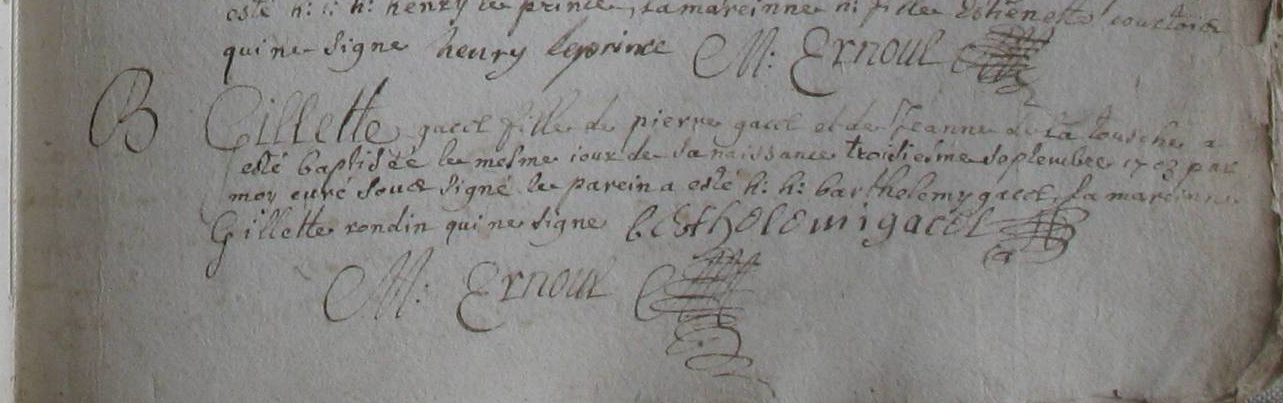 esté h: h: henry le prince, la mareinne h: fille Esthenette courtois
qui ne signe henry leprince M: Ernoul
B Gillette gacel fille de pierre gacel et de Jeanne de la tousche a
esté baptisée le mesme iour de sa naissance troisiesme septembre 1703 par
moy curé soub signé le parein a esté h: h: barthelemy gacel, la mareinne
Gillette rondin qui ne signe bertholemi gacel
M: Ernoul